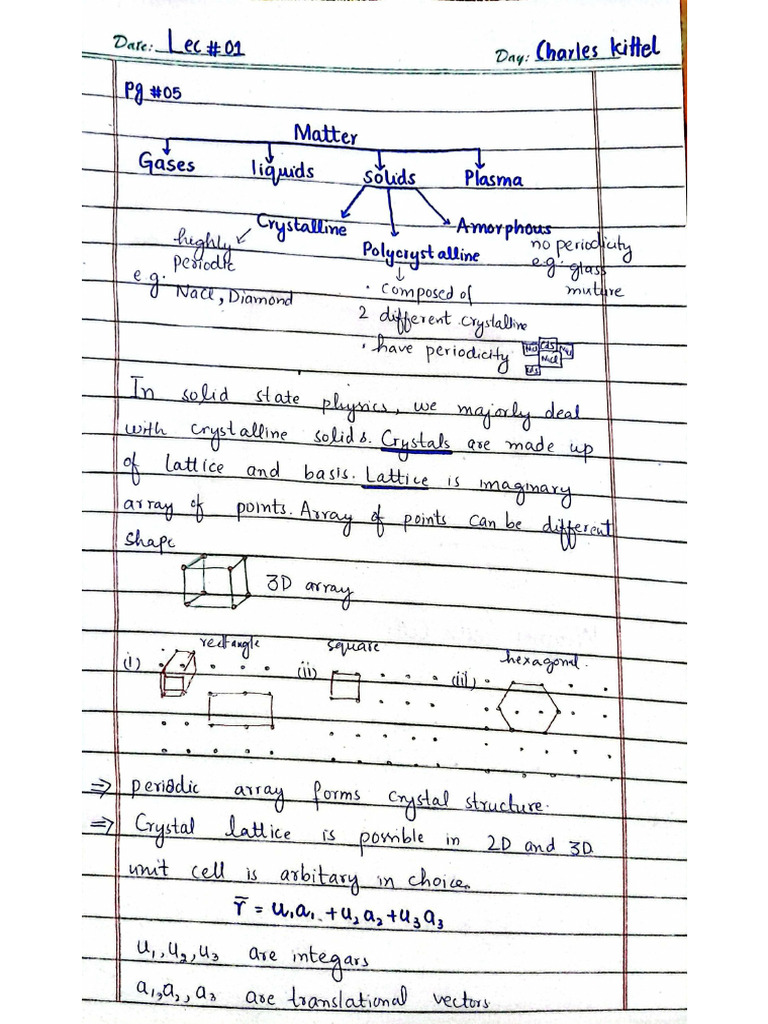 Date: Lec # 01 Day: Charles Kittel
Pg #05
Matter
Gases liquids solids Plasma
Crystalline Polycrystalline Amorphous
highly
periodic
e.g.
NaCl, Diamond
. composed of
2 different crystalline
. have periodicity
NaCl CdS NaCl
NaCl
CdS
no periodicity
e.g. glass
muture
In solid state physics, we majorly deal
with crystalline solids. Crystals are made up
of lattice and basis. Lattice is imaginary
array of points. Array of points can be different
shape
3D array
(i) rectangle (ii) square (iii) hexagonal.
⇒ periodic array forms crystal structure.
⇒ Crystal lattice is possible in 2D and 3D
unit cell is arbitary in choice.
r̄ = u₁a₁ + u₂a₂ + u₃a₃
u₁, u₂, u₃ are integars
a₁, a₂, a₃ are translational vectors